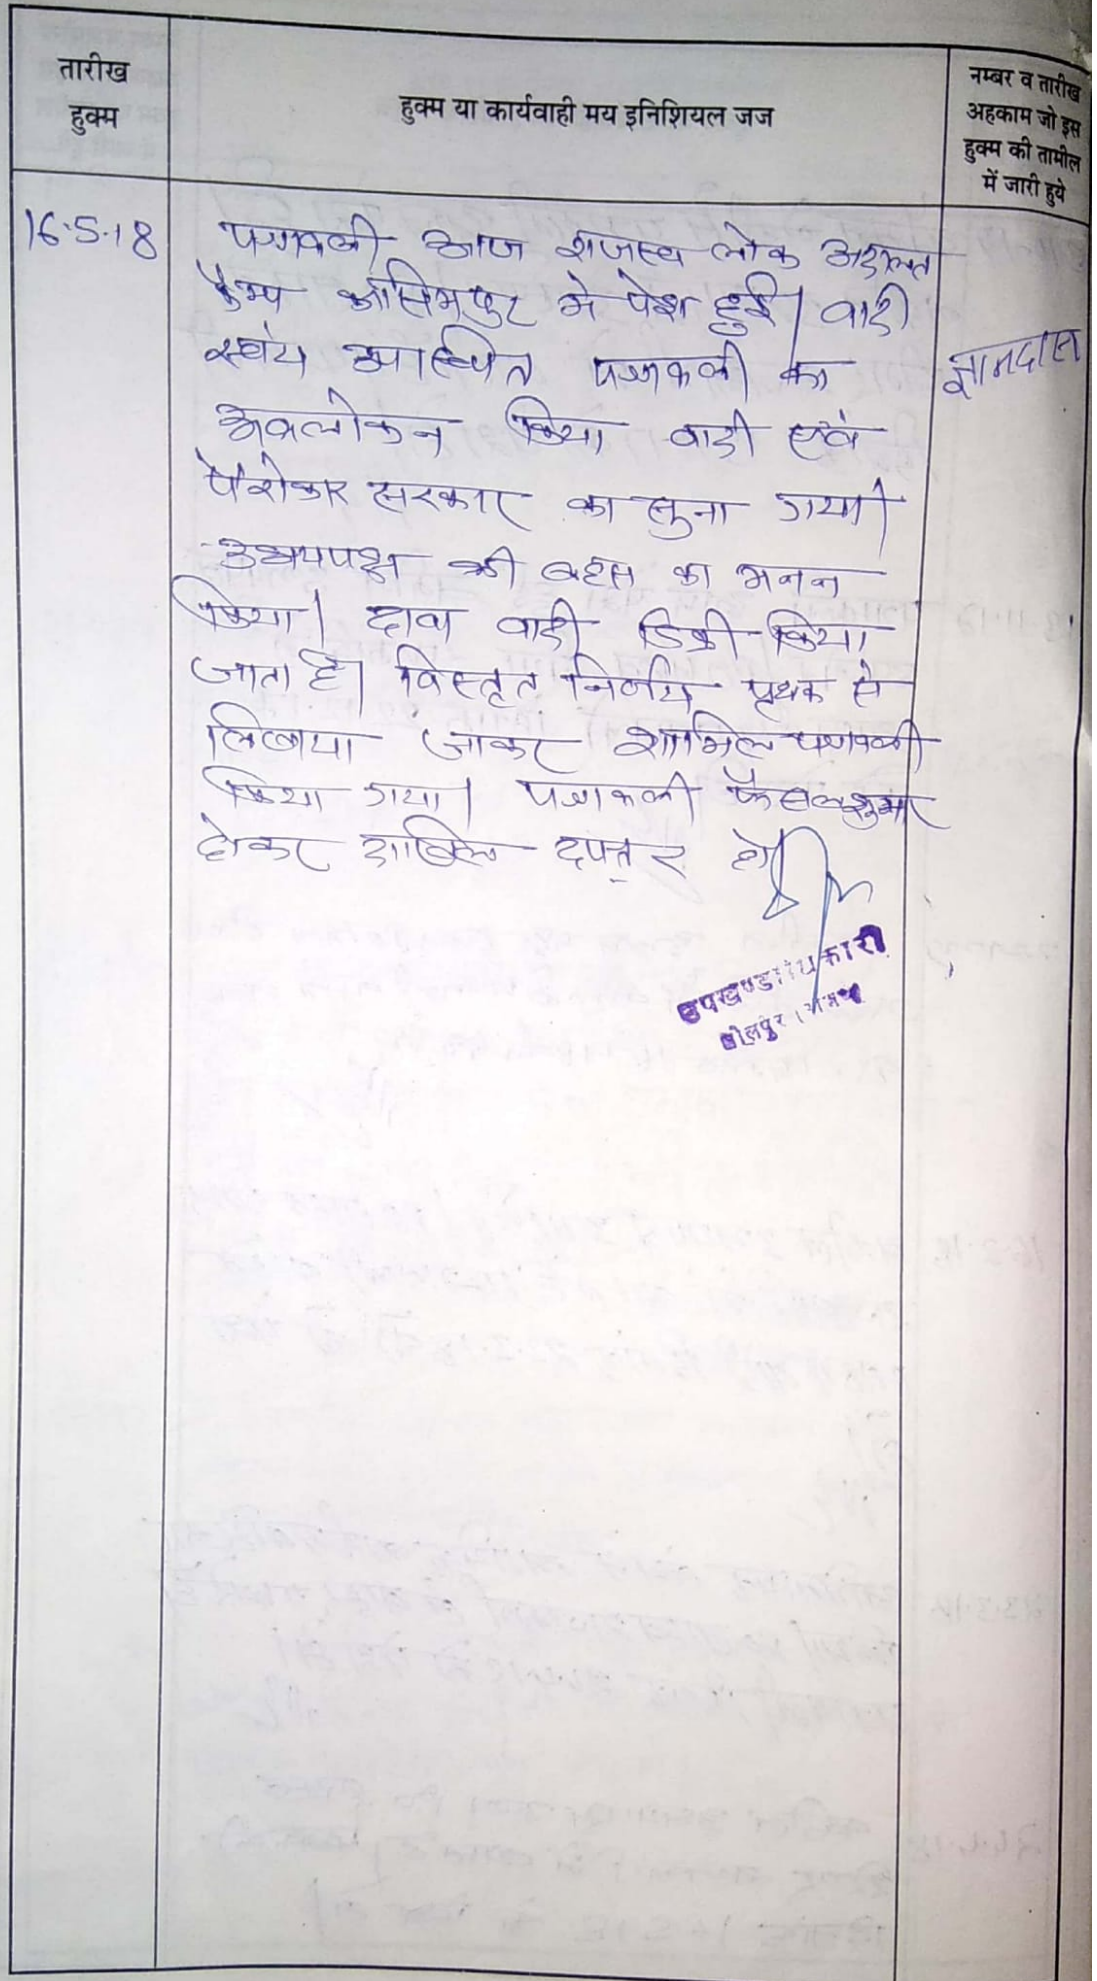 तारीख
हुक्म
हुक्म या कार्यवाही मय इनिशियल जज
नम्बर व तारीख
अहकाम जो इस
हुक्म की तामील
में जारी हुये
16.5.18
पत्रावली आज राजस्व लोक अदालत
कैम्प में पेश हुई। वादी
स्वंय उपस्थित पत्रावली का
अवलोकन किया वादी एवं
पैरोकार सरकार का सुना गया।
उभयपक्ष की बहस का मनन
किया। दावा वादी डिक्री किया
जाता है। विस्तृत निर्णय पृथक से
लिखाया जाकर शामिल पत्रावली
किया गया। पत्रावली फैसलशुमार
होकर दाखिल दफ्तर हो।
ज्ञानदास
उपखण्ड अधिकारी
धौलपुर